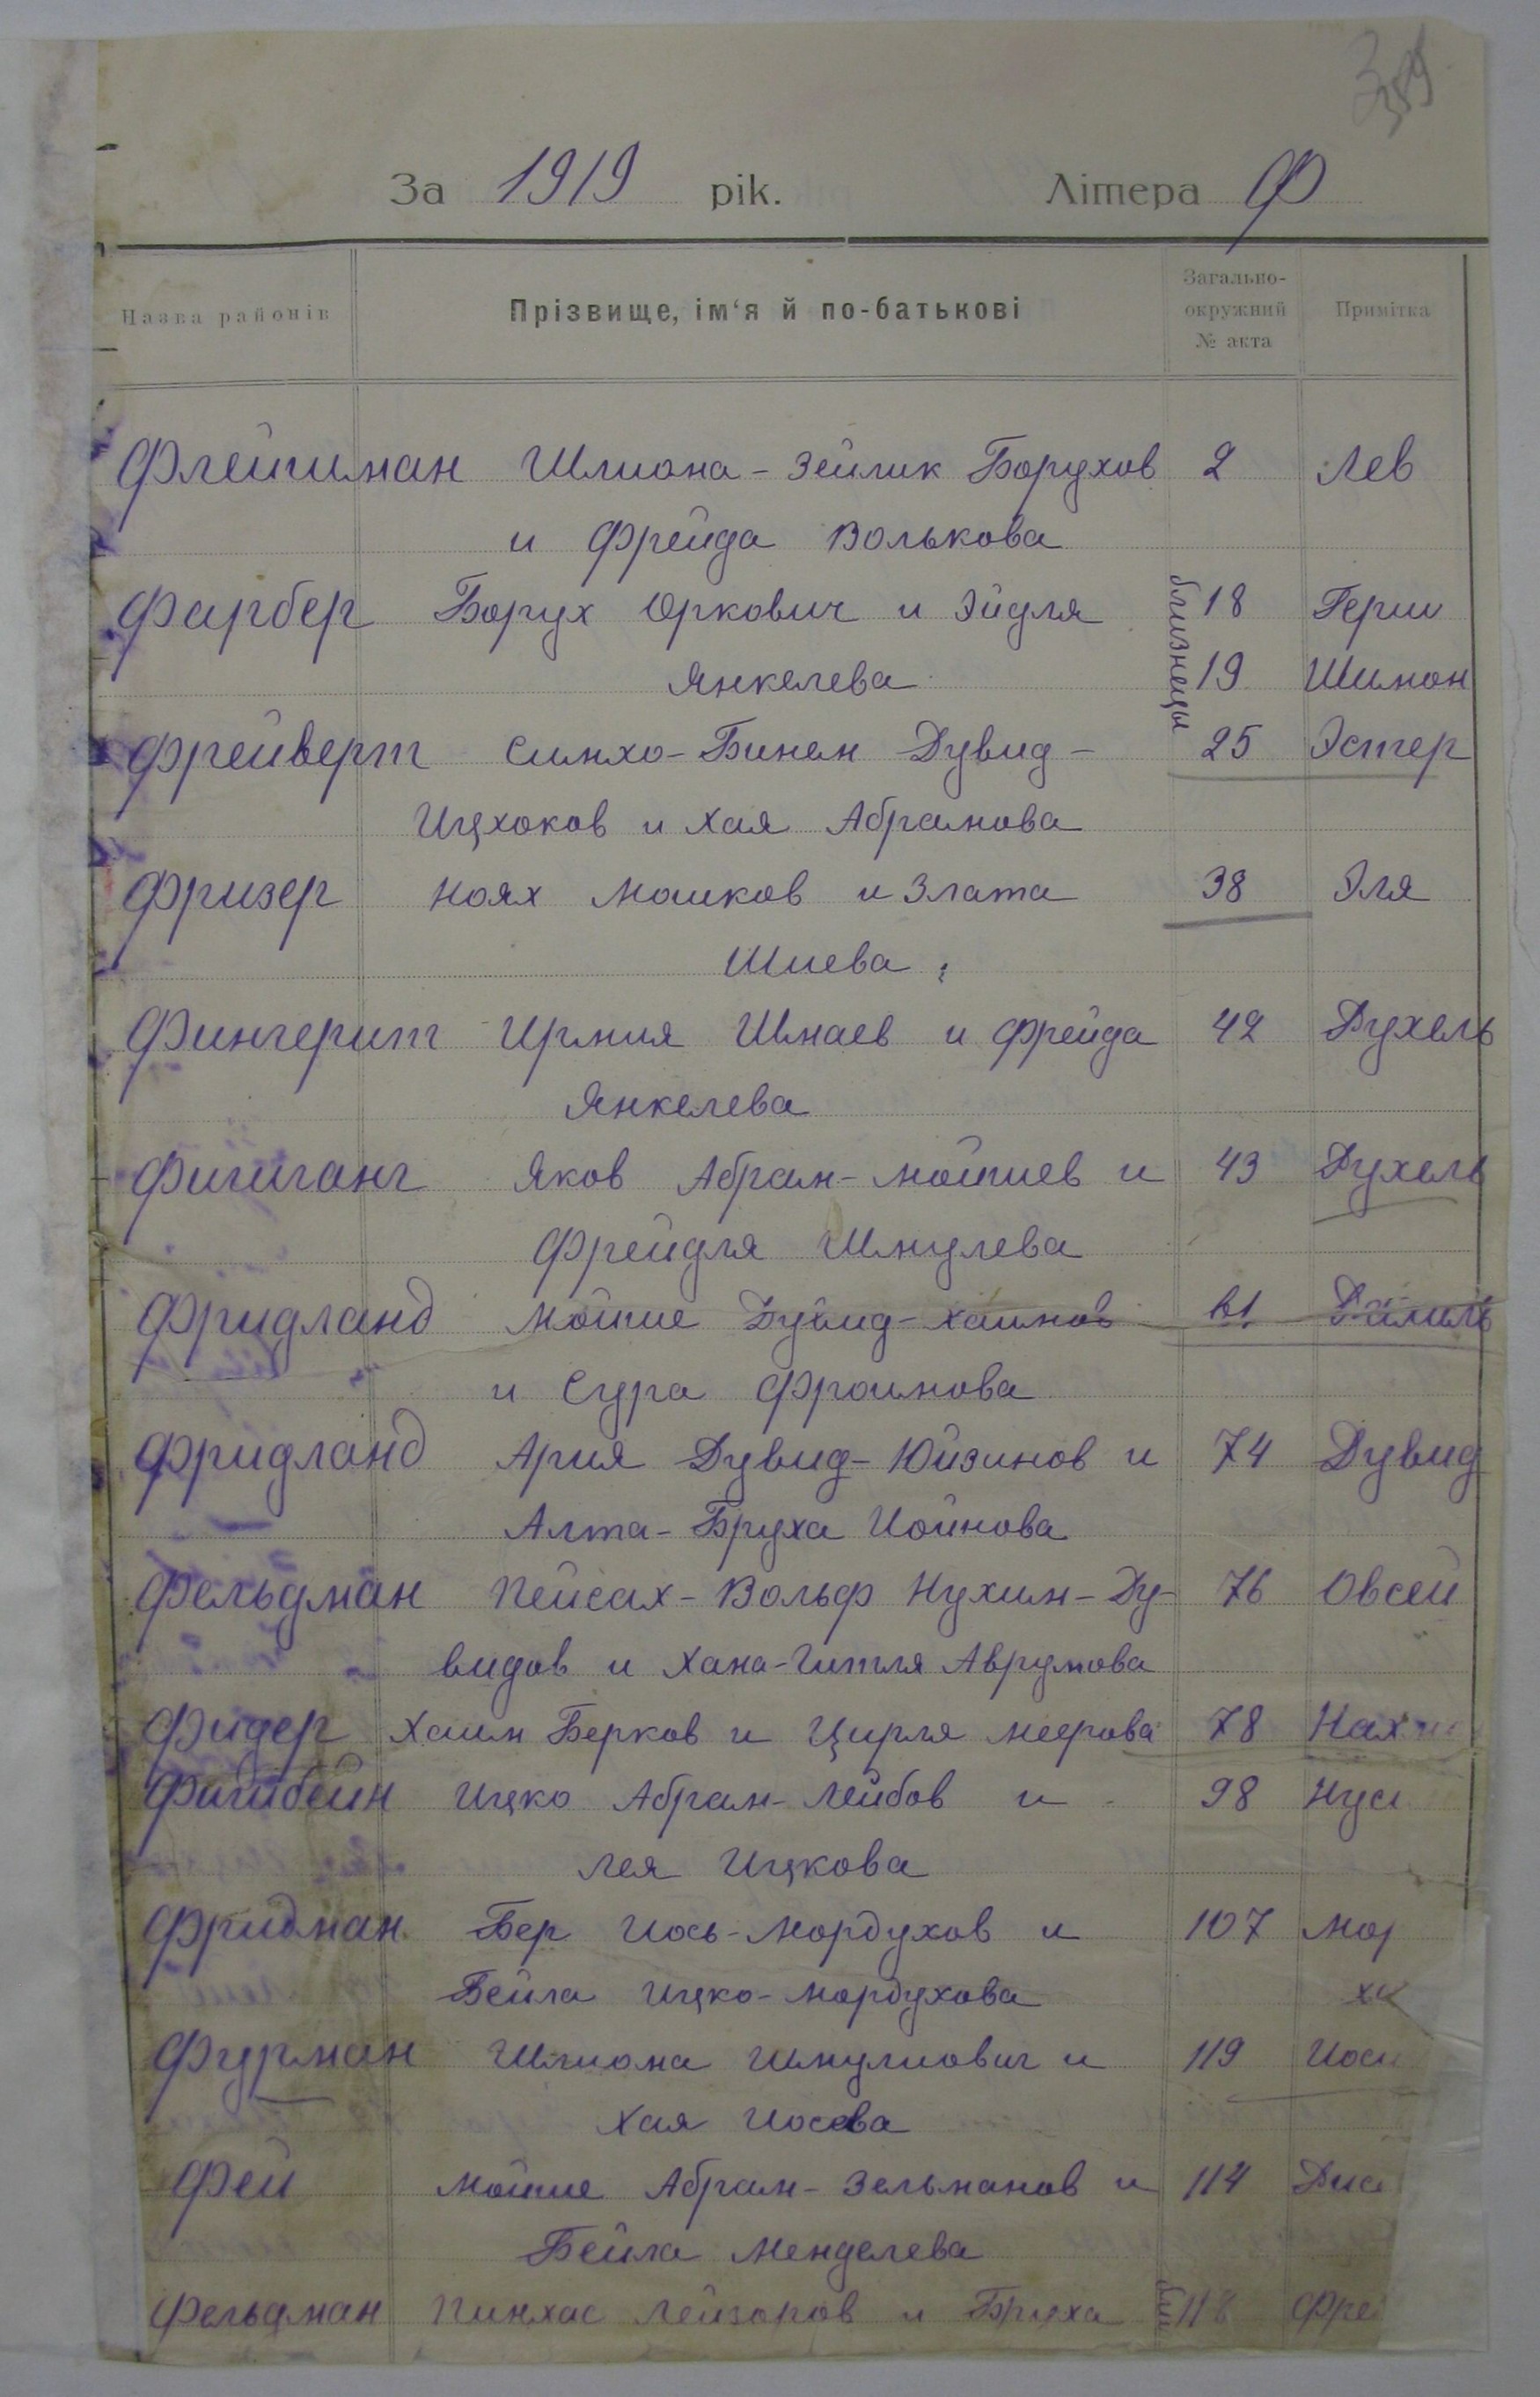 За 1919 рік. Літера Ф
Назва районів Прізвище, ім'я й по-батькові Загально-окружний № акта Примітка
Флейшман Шлиома-Зейлик Борухов 2 Лев
и Фрейда Волькова
Фарбер Борух Оркович и Эйдля близнецы 18 Герш
Янкелева 19 Шимон
Фрейверт Симхо-Бинем Дувид- 25 Эстер
Ицхоков и Хая Абрамова
Фризер Ноях Мошков и Злата 38 Эля
Шиева
Фингерит Ирмия Шмаев и Фрейда 42 Рухель
Янкелева
Фишганг Яков Абрам-Мойшев и 43 Рухель
Фрейдля Шмулева
Фридланд Мойше Дувид-Хаимов 61
и Сура Фроимова
Фридланд Ария Дувид-Юйзинов и 74 Дувид
Алта-Бруха Иойнова
Фельдман Пейсах-Вольф Нухим-Ду- 76 Овсей
видов и Хана-Гитля Аврумова
Фидер Хаим Берков и Цирля Меерова 78 Нах
Фишбейн Ицко Абрам-Лейбов и 98 Нус
Лея Ицкова
Фридман Бер Иось-Мордухов и 107 Мор
Бейла Ицко-Мордухова
Фурман Шлиома Шмулиович и 119 Иоси
Хая Иосева
Фей Мойше Абрам-Зельманов и 114
Бейла Менделева
Фельдман Пинхас Лейзоров и Бруха 118 Фре